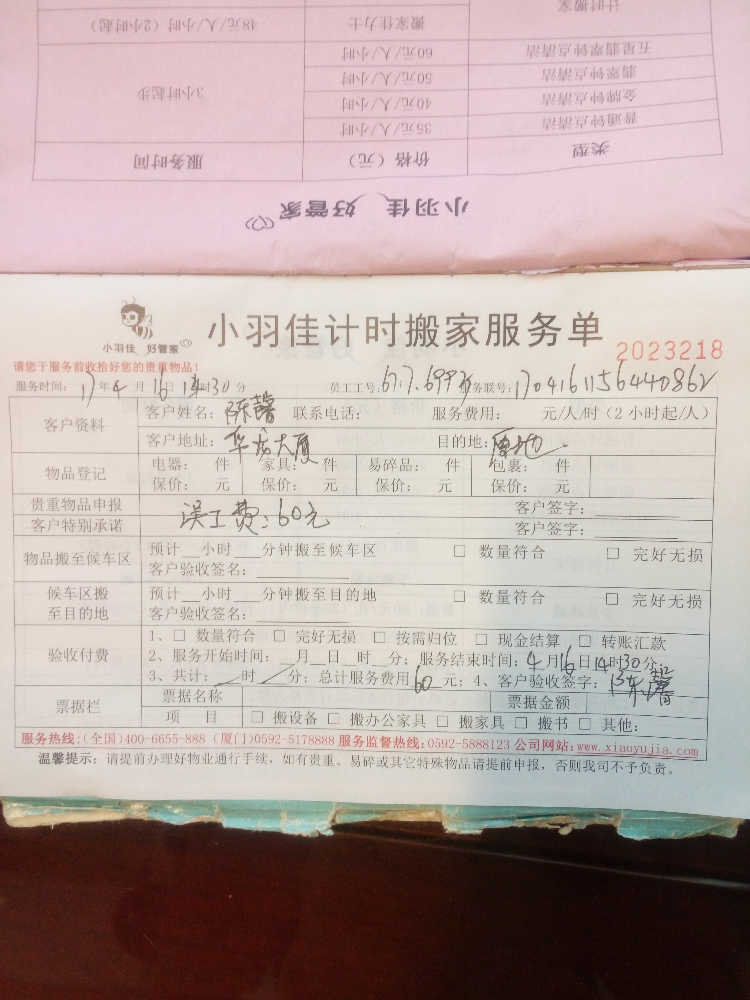 计时搬家
搬家佳力士 48元/人/小时（2小时起）
五星翡翠钟点清洁 60元/人/小时
翡翠钟点清洁 50元/人/小时 3小时起步
金牌钟点清洁 40元/人/小时
普通钟点清洁 35元/人/小时
类型 价格（元） 服务时间
小羽佳 好管家
小羽佳 好管家
小羽佳计时搬家服务单
2023218
请您于服务前收拾好您的贵重物品！
服务时间：17年4月16日14时30分 员工工号： 服务联号：1704161156440862
客户资料 客户姓名：陈馨 联系电话： 服务费用： 元/人/时（2小时起/人）
客户地址：华龙大厦 目的地：原地
物品登记 电器： 件 家具： 件 易碎品： 件 包裹： 件
保价： 元 保价： 元 保价： 元 保价： 元
贵重物品申报 客户签字：
客户特别承诺 误工费：60元 客户签字：
物品搬至候车区 预计__小时__分钟搬至候车区 □ 数量符合 □ 完好无损
客户验收签名：
候车区搬至目的地 预计__小时__分钟搬至目的地 □ 数量符合 □ 完好无损
客户验收签名：
验收付费 1、□ 数量符合 □ 完好无损 □ 按需归位 □ 现金结算 □ 转账汇款
2、服务开始时间：__月__日__时__分；服务结束时间：4月16日14时30分；
3、共计：__时__分；总计服务费用60元；4、客户验收签字：陈馨
票据栏 票据名称 票据金额
项 目 □ 搬设备 □ 搬办公家具 □ 搬家具 □ 搬书 □ 其他：
服务热线：(全国)400-6655-888 (厦门)0592-5178888 服务监督热线：0592-5888123 公司网站：www.xiaoyujia.com
温馨提示：请提前办理好物业通行手续，如有贵重、易碎或其它特殊物品请提前申报，否则我司不予负责。